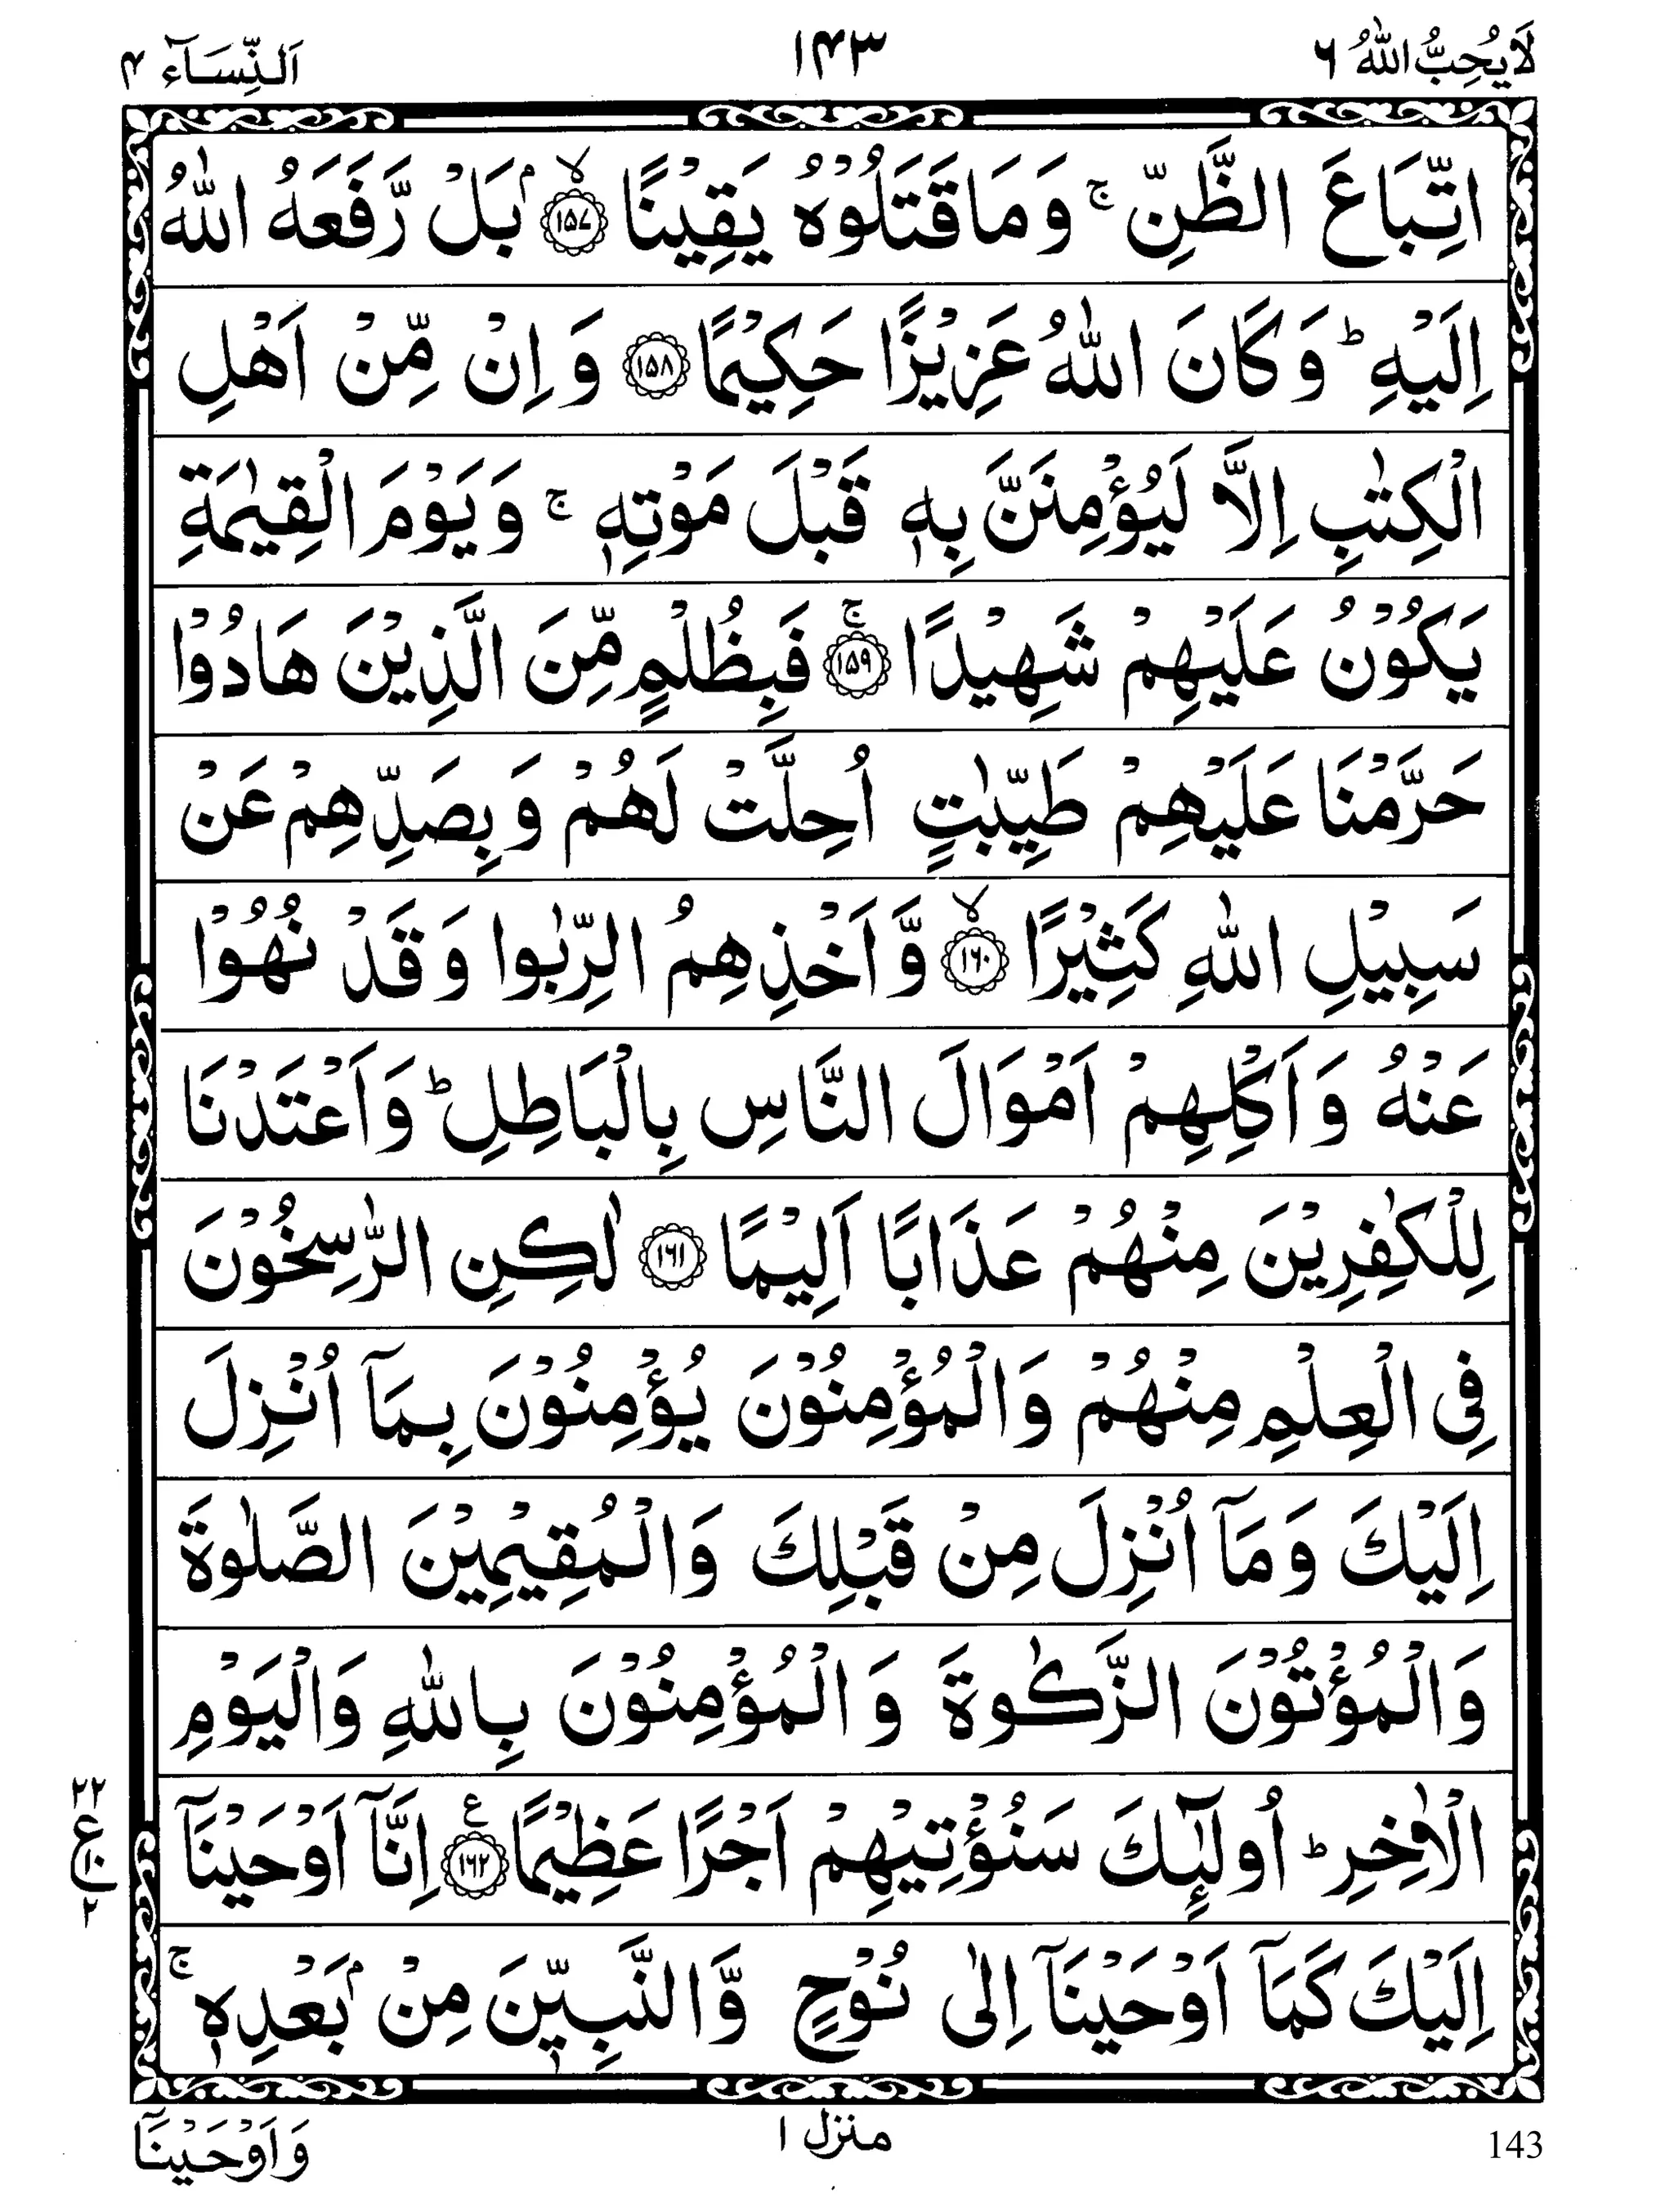 لَا یُحِبُّ اللّٰهُ ۶ ۱۴۳ اَلنِّسَآء ۴
اتِّبَاعَ الظَّنِّ ۚ وَمَا قَتَلُوْهُ یَقِیْنًۢا ﴿۱۵۷﴾ۙ بَلْ رَّفَعَهُ اللّٰهُ
اِلَیْهِ ؕ وَكَانَ اللّٰهُ عَزِیْزًا حَكِیْمًا ﴿۱۵۸﴾ وَ اِنْ مِّنْ اَهْلِ
الْكِتٰبِ اِلَّا لَیُؤْمِنَنَّ بِهٖ قَبْلَ مَوْتِهٖ ۚ وَیَوْمَ الْقِیٰمَةِ
یَكُوْنُ عَلَیْهِمْ شَهِیْدًا ﴿۱۵۹﴾ۚ فَبِظُلْمٍ مِّنَ الَّذِیْنَ هَادُوْا
حَرَّمْنَا عَلَیْهِمْ طَیِّبٰتٍ اُحِلَّتْ لَهُمْ وَبِصَدِّهِمْ عَنْ
سَبِیْلِ اللّٰهِ كَثِیْرًا ﴿۱۶۰﴾ۙ وَّاَخْذِهِمُ الرِّبٰوا وَقَدْ نُهُوْا
عَنْهُ وَاَكْلِهِمْ اَمْوَالَ النَّاسِ بِالْبَاطِلِ ؕ وَاَعْتَدْنَا
لِلْكٰفِرِیْنَ مِنْهُمْ عَذَابًا اَلِیْمًا ﴿۱۶۱﴾ لٰكِنِ الرّٰسِخُوْنَ
فِی الْعِلْمِ مِنْهُمْ وَالْمُؤْمِنُوْنَ یُؤْمِنُوْنَ بِمَاۤ اُنْزِلَ
اِلَیْكَ وَمَاۤ اُنْزِلَ مِنْ قَبْلِكَ وَالْمُقِیْمِیْنَ الصَّلٰوةَ
وَالْمُؤْتُوْنَ الزَّكٰوةَ وَالْمُؤْمِنُوْنَ بِاللّٰهِ وَالْیَوْمِ
الْاٰخِرِ ؕ اُولٰٓئِكَ سَنُؤْتِیْهِمْ اَجْرًا عَظِیْمًا ﴿۱۶۲﴾ ع اِنَّاۤ اَوْحَیْنَاۤ
۲۲
ع۱۰
۲
اِلَیْكَ كَمَاۤ اَوْحَیْنَاۤ اِلٰی نُوْحٍ وَّالنَّبِیّٖنَ مِنْۢ بَعْدِهٖ ۚ
143 منزل ۱ وَاَوْحَیْنَاۤ